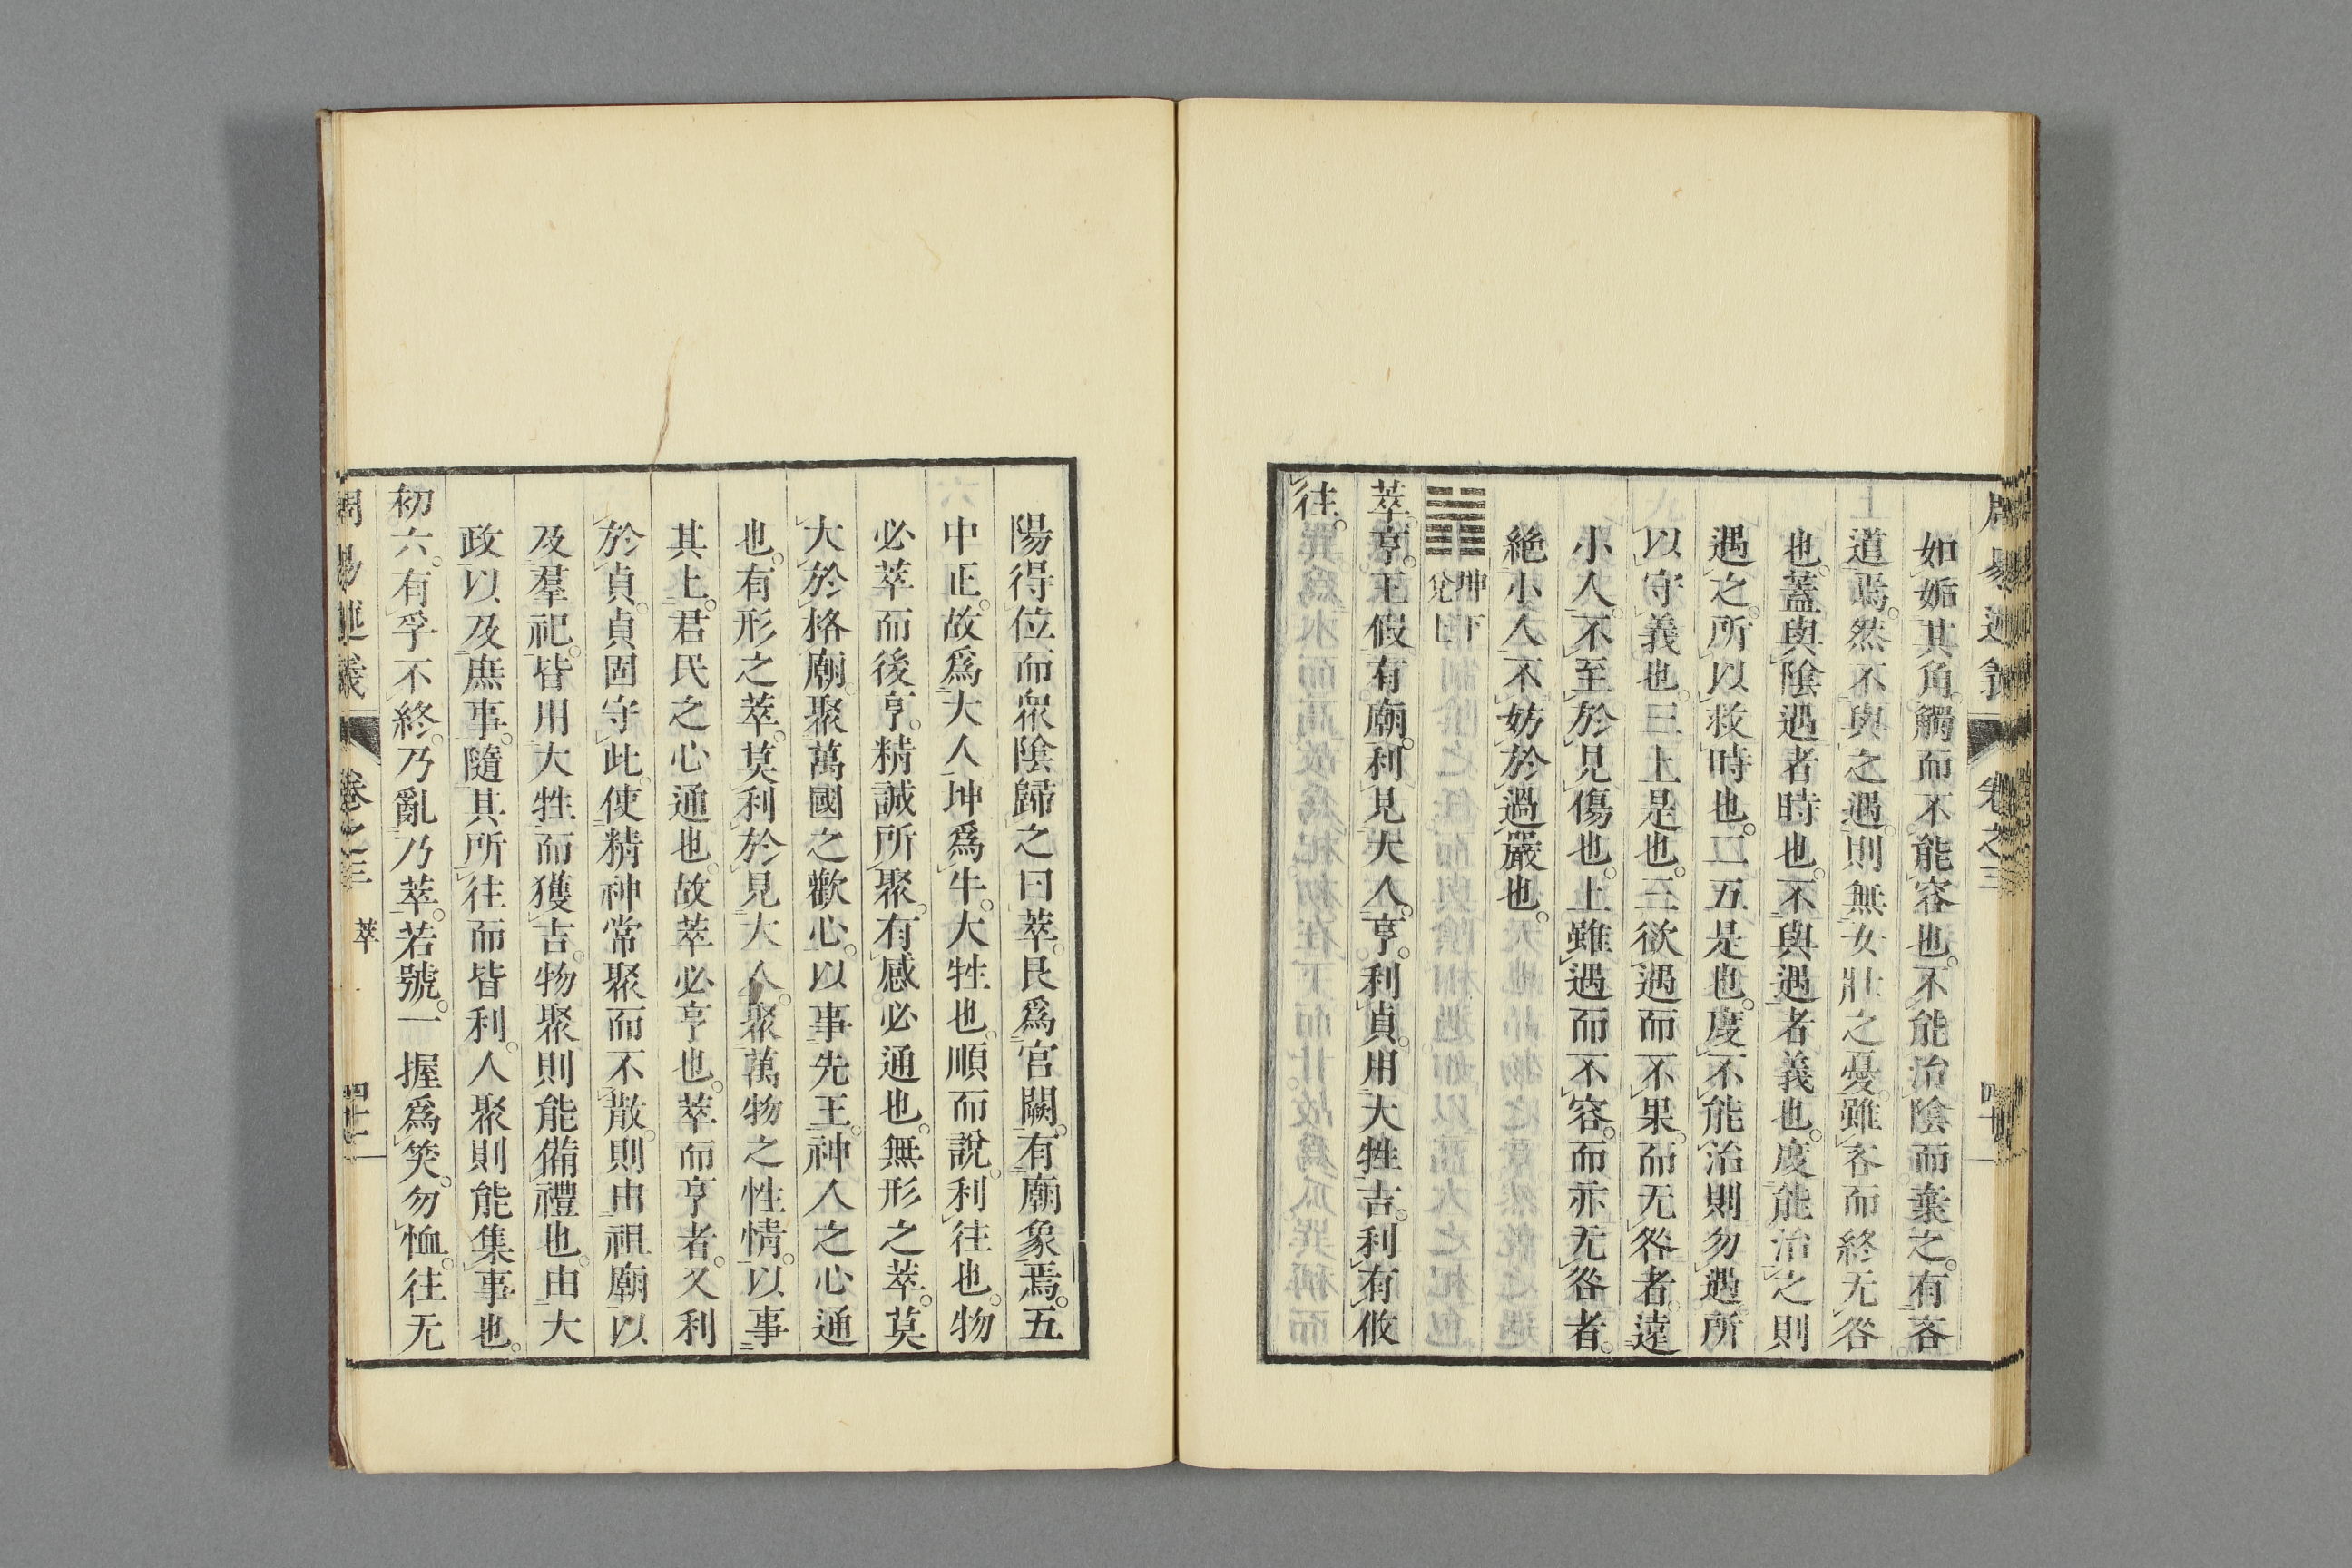 如姤其角。觸而不能容也。不能治陰而棄之。有吝
道焉。然不與之遇。則無女壯之憂。雖吝而終无咎
也。蓋與陰遇者時也。不與遇者義也。度能治之則
遇之。所以救時也。二五是也。度不能治則勿遇。所
以守義也。三上是也。三欲遇而不果。而无咎者。遠
小人。不至於見傷也。上雖遇而不容。而亦无咎者。
絶小人不妨於過嚴也。
坤下
兌上
萃。亨。王假有廟。利見大人。亨。利貞。用大牲吉。利有攸
往。
陽得位而衆陰歸之曰萃。艮爲宮闕。有廟象焉。五
中正。故爲大人。坤爲牛。大牲也。順而說。利往也。物
必萃而後亨。精誠所聚。有感必通也。無形之萃。莫
大於格廟。聚萬國之歡心。以事先王。神人之心通
也。有形之萃。莫利於見大人。聚萬物之性情。以事
其上。君民之心通也。故萃必亨也。萃而亨者。又利
於貞。貞固守此。使精神常聚而不散。則由祖廟以
及羣祀。皆用大牲而獲吉。物聚則能備禮也。由大
政以及庶事。隨其所往而皆利。人聚則能集事也。
初六。有孚不終。乃亂乃萃。若號。一握爲笑。勿恤。往无
周易述義 卷之三 萃